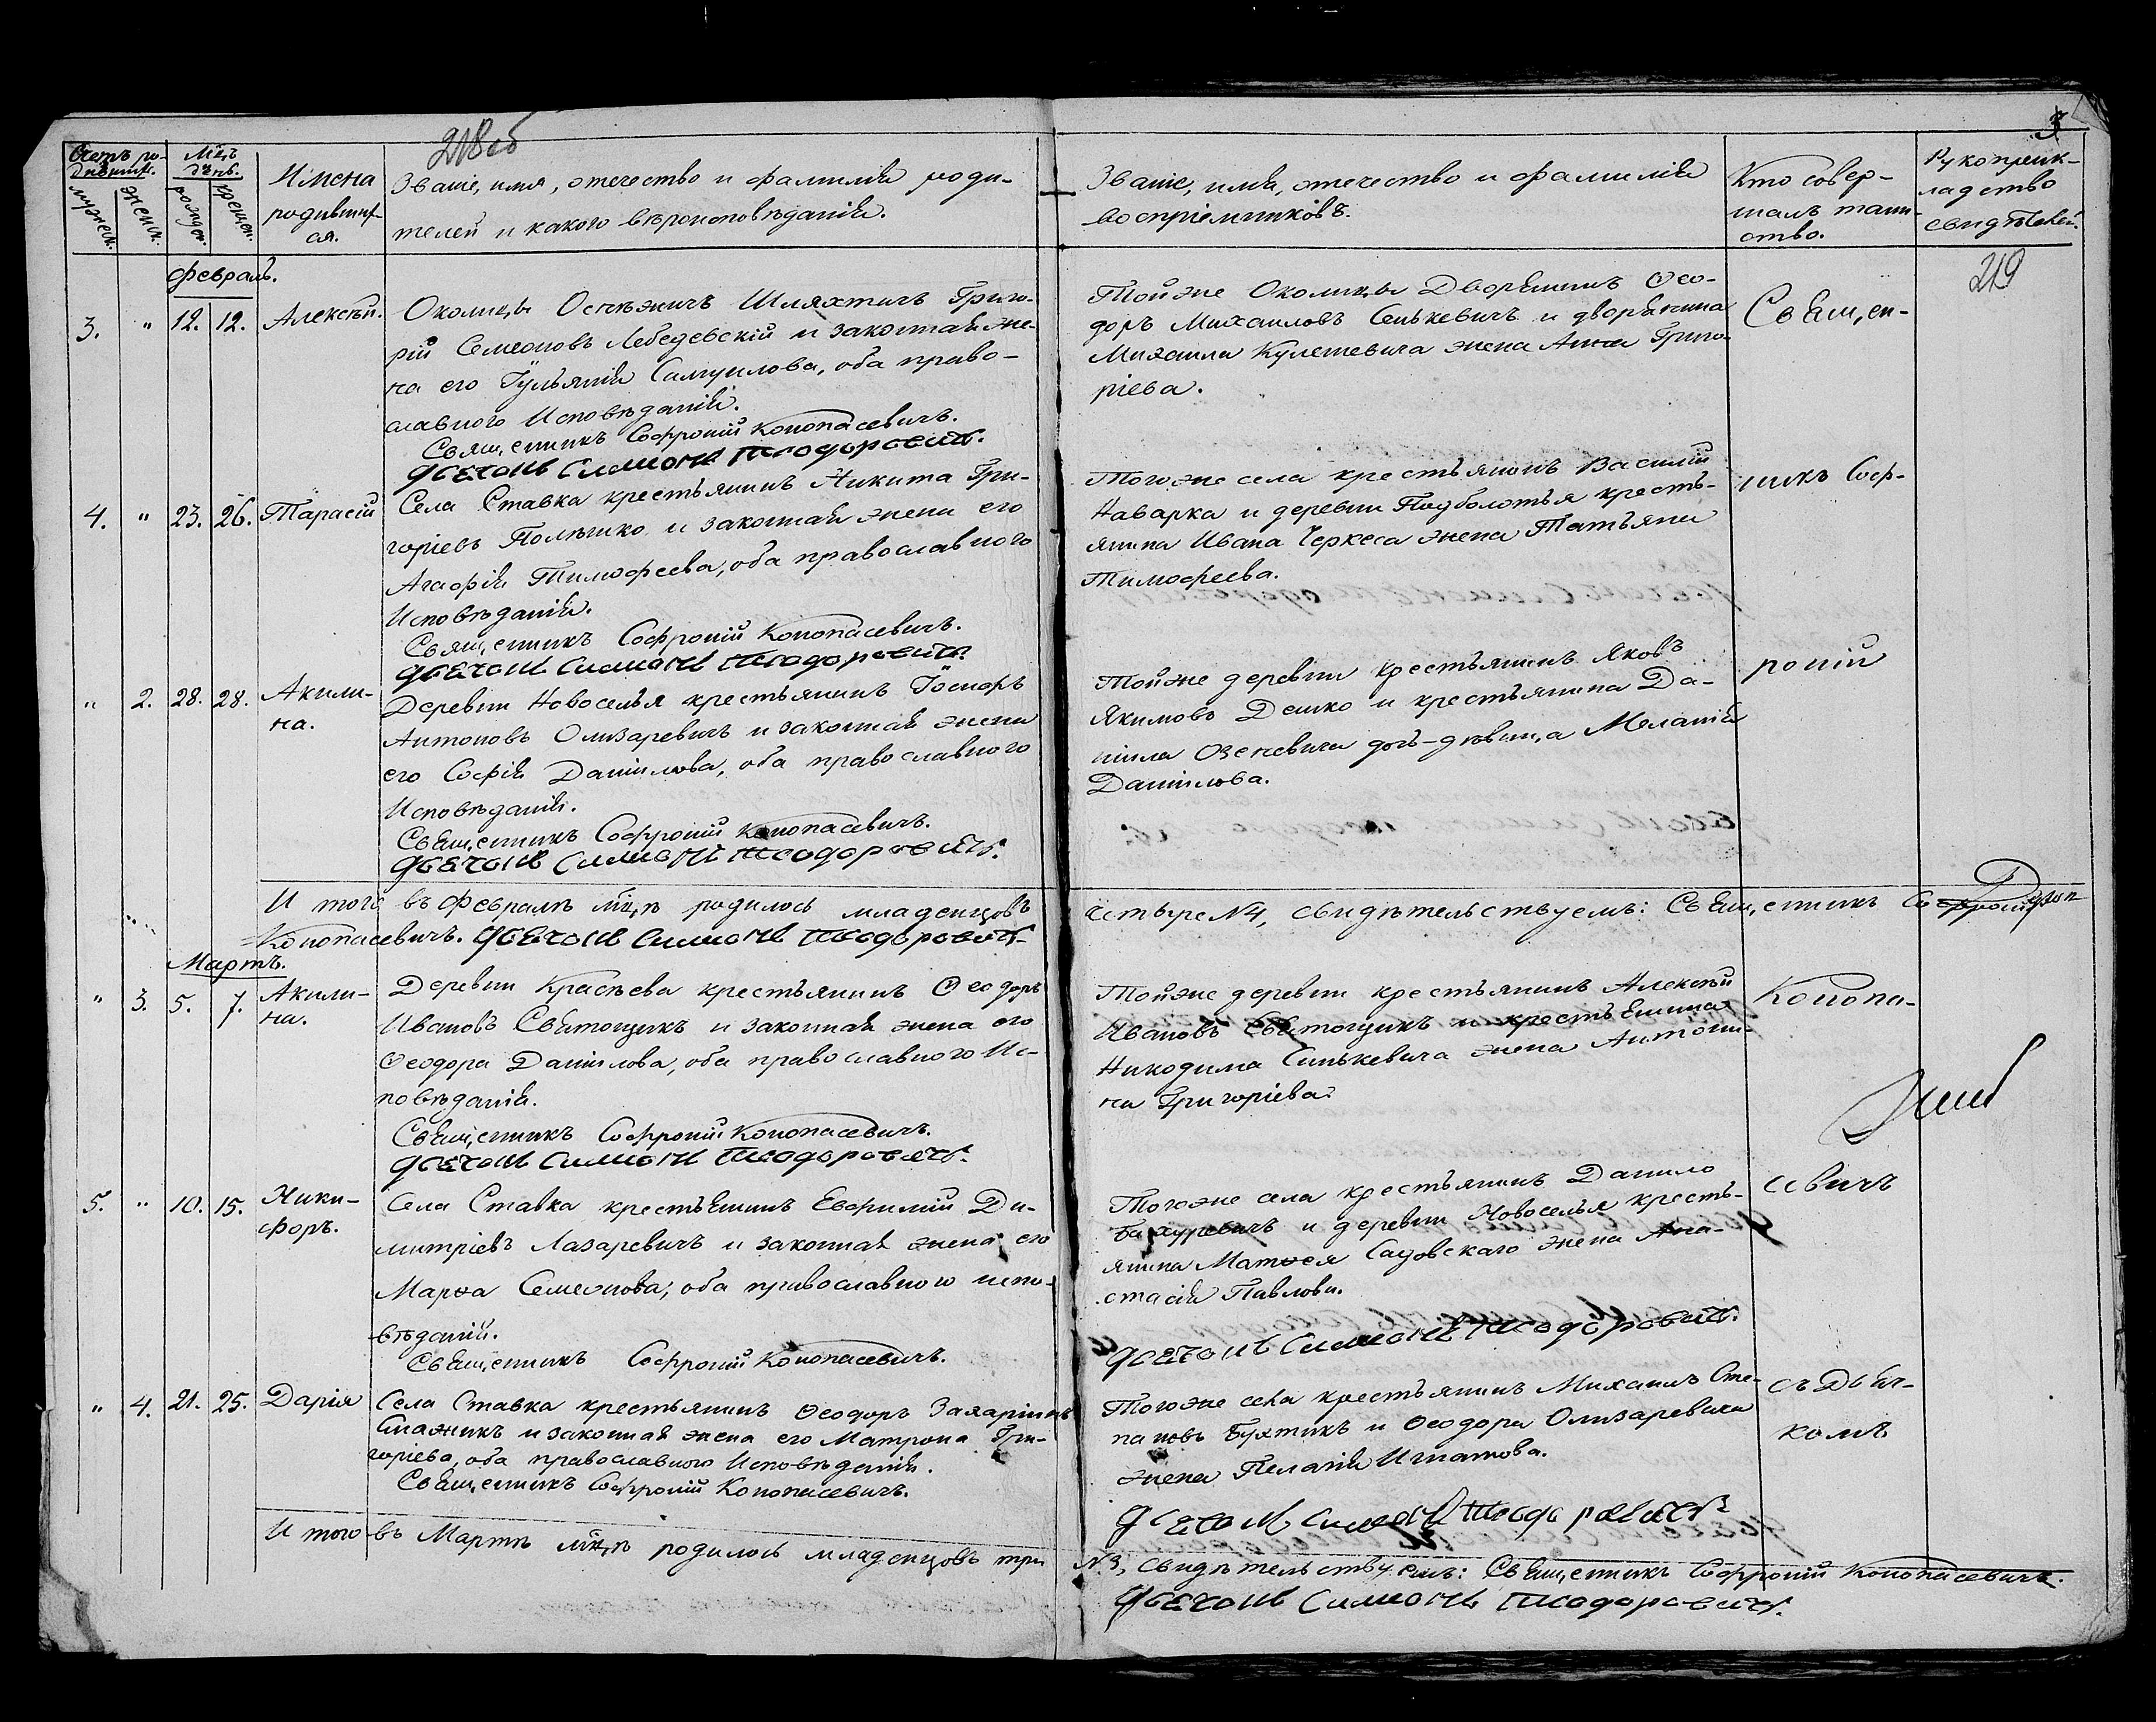 218 об
3
219
Счетъ родившихъ.
мужеск.
женск.
Мцъ день.
рожден.
крещен.
Имена
родивших-
ся.
Званіе, имя, отечество и фамилія роди-
телей и какого вѣроисповѣданія.
Званіе, имя, отечество и фамилія
воспріемниковъ.
Кто совер-
шалъ таин-
ство.
Рукоприк-
ладство
свидѣтелей.
Февраль.
3. " 12. 12. Алексѣй.
Околицы Осѣкжичъ Шляхтичъ Григо-
рій Семеоновъ Лебедевскій и законная же-
на его Іульянія Самуилова, оба право-
славного Исповѣданія.
Священникъ Софроній Конопасевичъ.
Дьячокъ Симонъ Теодоровичъ.
Тойже Околицы Дворянинъ Ѳео-
доръ Михаиловъ Сенькевичъ и дворянина
Михаила Кулешевича жена Анна Григо-
ріева.
Священ-
4. " 23. 26. Тарасій
Села Ставка крестьянинъ Никита Гри-
горіевъ Полѣшко и законная жена его
Агафія Тимофеева, оба православного
Исповѣданія.
Священникъ Софроній Конопасевичъ.
Дьячокъ Симонъ Теодоровичъ.
Тогоже села крестьянинъ Василій
Наварка и деревни Подболотья кресть-
янина Ивана Черкеса жена Татьяна
Тимофеева.
никъ Соф-
" 2. 28. 28. Акили-
на.
Деревни Новоселья крестьянинъ Іосифъ
Антоновъ Олизаревичъ и законная жена
его Софія Даніилова, оба православного
Исповѣданія.
Священникъ Софроній Конопасевичъ.
Дьячокъ Симонъ Теодоровичъ.
Тойже деревни крестьянинъ Яковъ
Якимовъ Дешко и крестьянина Да-
ніила Озеневича дочь-дѣвица Меланія
Даніилова.
роній
И того въ Февралѣ мцѣ родилось младенцовъ четыре №4, свидѣтельствуемъ: Священникъ Софроній
Конопасевичъ. Дьячокъ Симонъ Теодоровичъ.
Мартъ.
" 3. 5. 7. Акили-
на.
Деревни Красѣева крестьянинъ Ѳеодоръ
Ивановъ Святощикъ и законная жена его
Ѳеодора Даніилова, оба православного Ис-
повѣданія.
Священникъ Софроній Конопасевичъ.
Дьячокъ Симонъ Теодоровичъ.
Тойже деревни крестьянинъ Алексѣй
Ивановъ Святощикъ и крестьянина
Никодима Синькевича жена Антони-
на Григоріева.
Конопа-
5. " 10. 15. Ники-
форъ.
Села Ставка крестьянинъ Евфимій Ди-
митріевъ Лазаревичъ и законная жена его
Марѳа Семеонова, оба православного испо-
вѣданія.
Священникъ Софроній Конопасевичъ.
Тогоже села крестьянинъ Данило
Бахуревичъ и деревни Новоселья кресть-
янина Матѳея Садовскаго жена Ана-
стасія Павлова.
Дьячокъ Симонъ Теодоровичъ.
севичъ
" 4. 21. 25. Дарія
Села Ставка крестьянинъ Ѳеодоръ Захаріинъ
Смажикъ и законная жена его Матрона Гри-
горіева, оба православного Исповѣданія.
Священникъ Софроній Конопасевичъ.
Тогоже села крестьянинъ Михаилъ Сте-
пановъ Бухтикъ и Ѳеодора Олизаревича
жена Пелагія Игнатова.
Дьячокъ Симонъ Теодоровичъ.
съ Дьяч-
комъ
И того въ Мартѣ мцѣ родилось младенцовъ три №3, свидѣтельствуемъ: Священникъ Софроній Конопасевичъ.
Дьячокъ Симонъ Теодоровичъ.